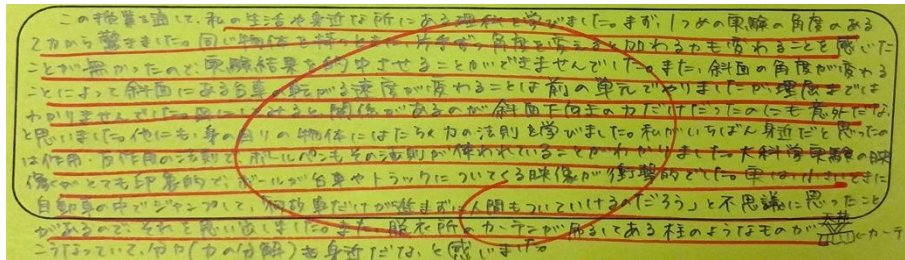 この授業を通して、私の生活や身近な所にある理科を学びました。まず、1つめの実験の角度のある
2力から驚きました。同じ物体を持つときに、片手ずつ角度を変えると加わる力も変わることを感じた
ことが無かったので実験結果を納得させることができませんでした。また、斜面の角度が変わる
ことによって斜面にある台車の転がる速度が変わることは前の単元でやりましたが、理屈までは
わかりませんでした。関係があるのが斜面下向きの力だけだったのにも意外だな
と思いました。他にも、身の回りの物体にはたらく力の法則を学びました。私がいちばん身近だと思ったの
は作用・反作用の法則で、ボールペンもその法則が使われていることがわかりました。大科学実験の映
像がとても印象的で、ボールが台車やトラックについてくる映像が衝撃的でした。実は、小さいときに
自動車の中でジャンプして、「何故車だけが進まず、人間もついていけるのだろう」と不思議に思ったこと
があるので、それを思い出しました。また、脱衣所のカーテンが吊るしてある柱のようなものが 天井 ←カーテ
こうなっていて、分力(力の分解)も身近だな、と感じました。